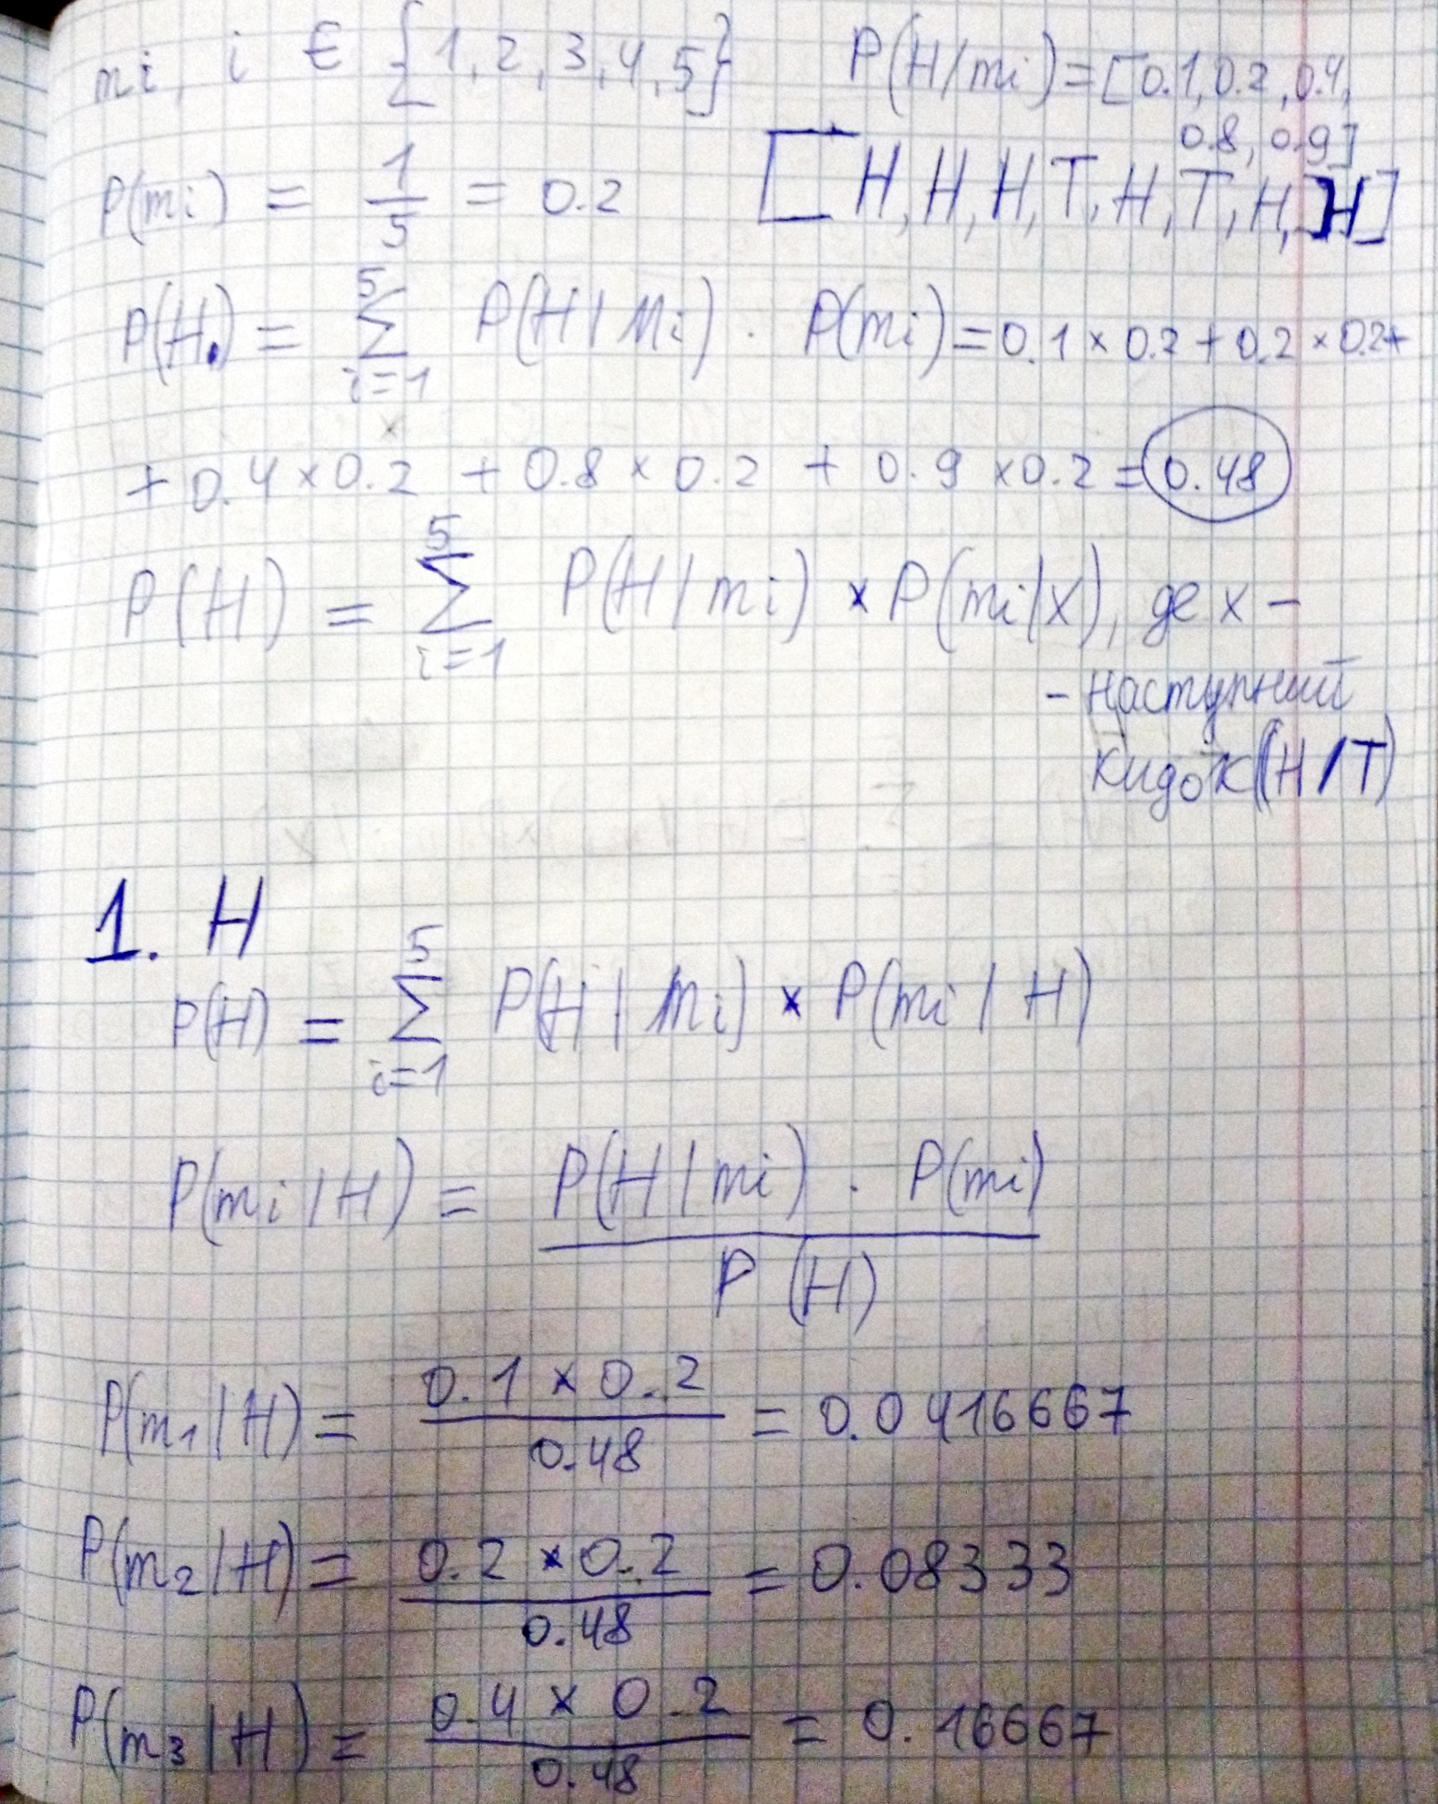 mi, i € {1,2,3,4,5} P(H/mi)=[0.1,0.2,0.4,
0.8, 0.9]
P(mi) = 1/5 = 0.2 [H, H, H, T, H, T, H, H]
P(H) = 5 Σ i=1 P(H|Mi) · P(mi)=0.1×0.2+0.2×0.2+
+0.4×0.2 +0.8×0.2 + 0.9×0.2=0.48
P(H) = 5 Σ i=1 P(H/mi) × P(mi|x), де x –
- наступний
кидок (H/T)
1. H
P(H) = 5 Σ i=1 P(H|mi) × P(mi | H)
P(mi/H) = P(H|mi) · P(mi) / P(H)
P(m1|H) = 0.1 × 0.2 / 0.48 = 0.0416667
P(m2/H) = 0.2 × 0.2 / 0.48 = 0.08333
P(m3|H) = 0.4 × 0.2 / 0.48 = 0.16667